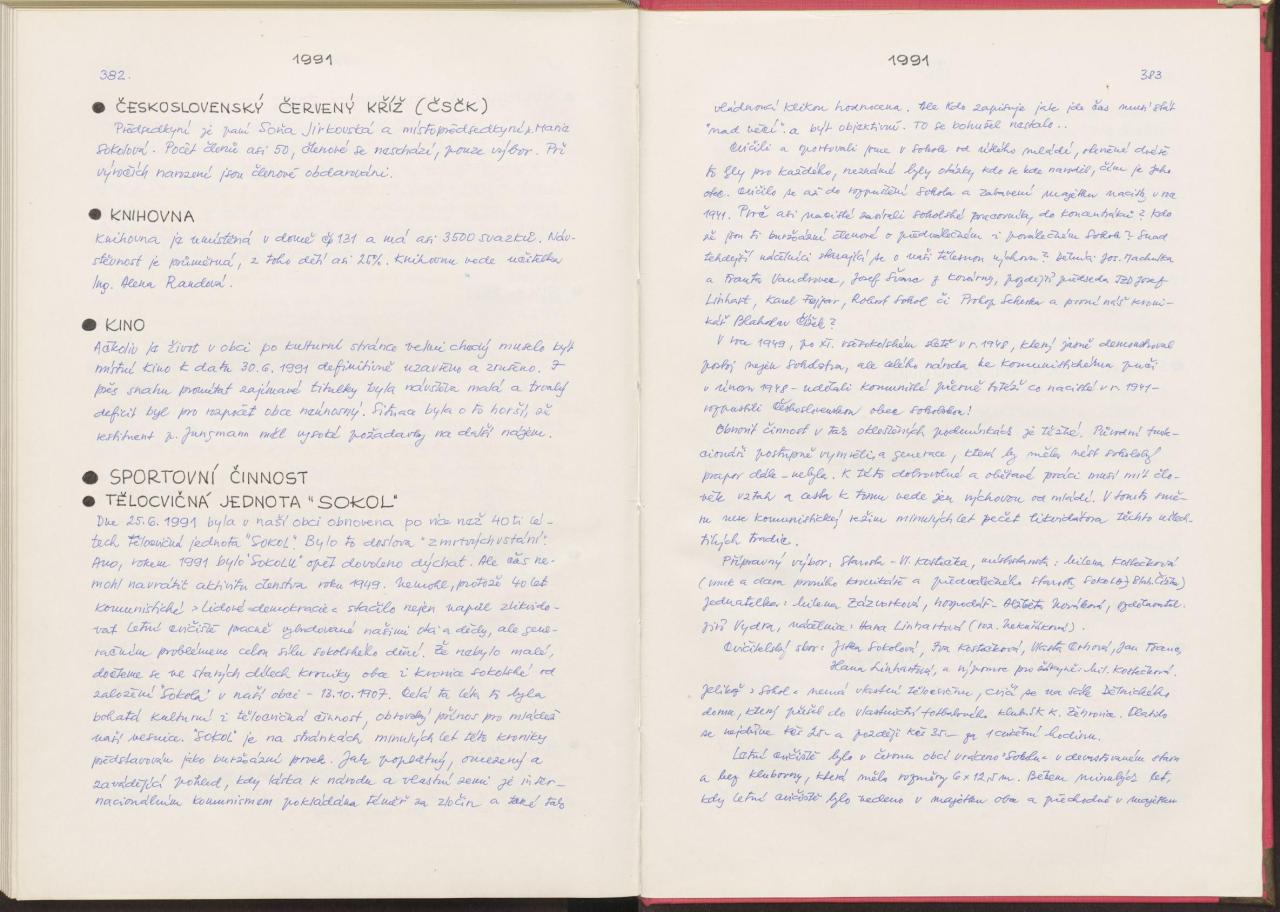 1991
382.
● ČESKOSLOVENSKÝ ČERVENÝ KŘÍŽ (ČSČK)
Předsedkyní je paní Soňa Jirkovská a místopředsedkyní p. Marie
Sokolová. Počet členů asi 50, členové se neschází, pouze výbor. Při
výročích narození jsou členové obdarováni.
● KNIHOVNA
Knihovna je umístěná v domě čp 131 a má asi 3500 svazků. Náv-
štěvnost je průměrná, z toho dětí asi 25%. Knihovnu vede učitelka
Ing. Alena Randová.
● KINO
Ačkoliv je život v obci po kulturní stránce velmi chudý muselo být
místní kino k datu 30.6.1991 definitivně uzavřeno a zrušeno. I
přes snahu promítat zajímavé titulky byla návštěva malá a trvalý
deficit byl pro rozpočet obce neúnosný. Situace byla o to horší, že
restituent p. Jungmann měl vysoké požadavky na další nájem.
● SPORTOVNÍ ČINNOST
● TĚLOCVIČNÁ JEDNOTA "SOKOL"
Dne 25.6.1991 byla v naší obci obnovena po více než 40ti le-
tech tělocvičná jednota "SOKOL". Bylo to doslova "z mrtvých vstání".
Ano, rokem 1991 bylo "SOKOLU" opět dovoleno dýchat. Ale čas ne-
mohl navrátit aktivitu členstva roku 1949. Nemohl, protože 40 let
komunistické »Lidové demokracie« stačilo nejen napůl zlikvido-
vat letní cvičiště pracně vybudované našimi otci a dědy, ale gene-
račním problémem celou sílu sokolského dění. Že nebylo malé,
dočteme se ve starých dílech kroniky obce i kronice sokolské od
založení "Sokola" v naší obci - 13.10.1907. Celá ta léta to byla
bohatá kulturní i tělocvičná činnost, obrovský přínos pro mládež
naší vesnice. "SOKOL" je na stránkách minulých let této kroniky
představován jako buržoazní prvek. Jak poplatný, omezený a
zavádějící pohled, kdy láska k národu a vlastní zemi je inter-
nacionálním komunismem pokládána téměř za zločin a také tak
1991
383
vládnoucí klikou hodnocena. Ale kdo zapisuje jak jde čas musí stát
"nad věcí" a být objektivní. To se bohužel nestalo..
Cvičili a sportovali jsme v Sokole od útlého mládí, otevřené dveře
tu byly pro každého, nezadné byly otázky kdo se kde narodil, čím je jeho
otec. Cvičilo se až do rozpuštění Sokola a zabavení majetku nacisty v roce
1941. Proč asi nacisté zavírali sokolské pracovníky do koncentráků? Kdo
že jsou ti buržoazní členové o předválečném i poválečném Sokole? Snad
tehdejší náčelníci starající se o naši tělesnou výchovu? Dělníci Jos. Machutka
a Franta Vandrovec, Josef Švarc z Kovárny, pozdější předseda JZD Josef
Linhart, Karel Fejfar, Robert Sokol či Prokop Scherka a první náš kroni-
kář Blahoslav Čížek?
V roce 1949, po XI. všesokolském sletě v r. 1948, který jasně demonstroval
postoj nejen Sokolstva, ale celého národa ke komunistickému puči
v únoru 1948 - udělali komunisté přesně totéž co nacisté v r. 1941 -
rozpustili Československou obec sokolskou!
Obnovit činnost v tak okleštěných podmínkách je těžké. Původní funk-
cionáři postupně vymřeli a generace, která by měla nést sokolský
prapor dále - nebyla. K této dobrovolné a obětavé práci musí mít člo-
věk vztah a cesta k tomu vede jen výchovou od mládí. V tomto smě-
ru nese komunistický režim minulých let pečeť likvidátora těchto ušlech-
tilých tradic.
Přípravný výbor: Starosta - Vl. Kostečka, místostarosta: Milena Kostečková
(vnuk a dcera prvního kronikáře a předválečného starosty SOKOLA Blah. Čížka)
Jednatelka: Milena Zázvorková, hospodář - Alžběta Nováková, vzdělavatel:
Jiří Vydra, náčelnice: Hana Linhartová (roz. Mekuňková).
Cvičitelský sbor: Jitka Sokolová, Iva Kostečková, Vlasta Crhová, Jan Franc,
Hana Linhartová, a výpomoc pro žákyně: Mil. Kostečková.
Jelikož »Sokol« nemá vlastní tělocvičnu, cvičí se na sále Dělnického
domu, který přišel do vlastnictví fotbalového klubu SK K. Žehrovice. Platilo
se nejdříve Kčs 25.- a později Kčs 35.- za 1 cvičební hodinu.
Letní cvičiště bylo v červnu obcí vráceno "Sokolu" v devastovaném stavu
a bez klubovny, která měla rozměry 6 x 12,5 m. Během minulých let,
kdy letní cvičiště bylo vedeno v majetku obce a přechodně v majetku